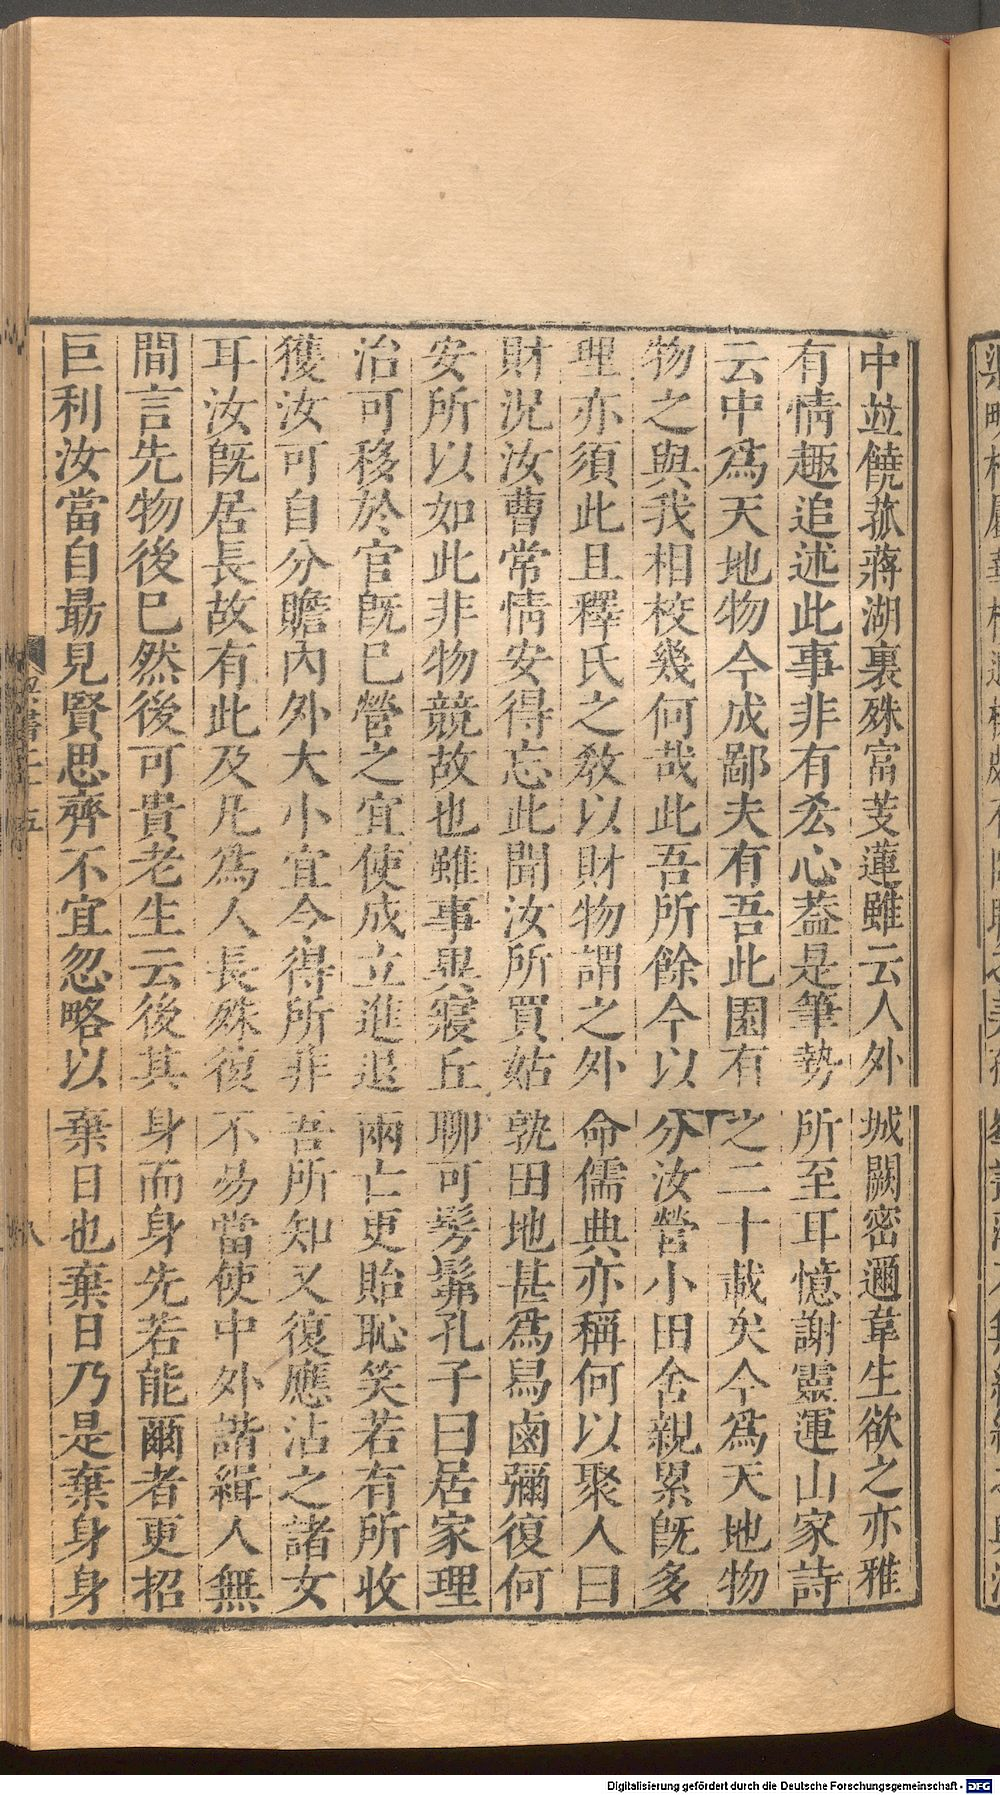 中並饒菰蔣湖裏殊富芰蓮雖云人外城闕密邇韋生欲之亦雅
有情趣追述此事非有吝心蓋是筆勢所至耳憶謝靈運山家詩
云中為天地物今成鄙夫有吾此園有之二十載矣今為天地物
物之與我相校幾何哉此吾所餘今以分汝營小田舍親累既多
理亦須此且釋氏之教以財物謂之外命儒典亦稱何以聚人曰
財況汝曹常情安得忘此聞汝所買姑孰田地甚為舄鹵彌復何
安所以如此非物競故也雖事異寢丘聊可髣髴孔子曰居家理
治可移於官既已營之宜使成立進退兩亡更貽恥笑若有所收
獲汝可自分贍內外大小宜令得所非吾所知又復應沾之諸女
耳汝既居長故有此及凡為人長殊復不易當使中外諧緝人無
間言先物後已然後可貴老生云後其身而身先若能爾者更招
巨利汝當自勗見賢思齊不宜忽略以棄日也棄日乃是棄身身
梁書二十五
八
Digitalisierung gefördert durch die Deutsche Forschungsgemeinschaft - DFG